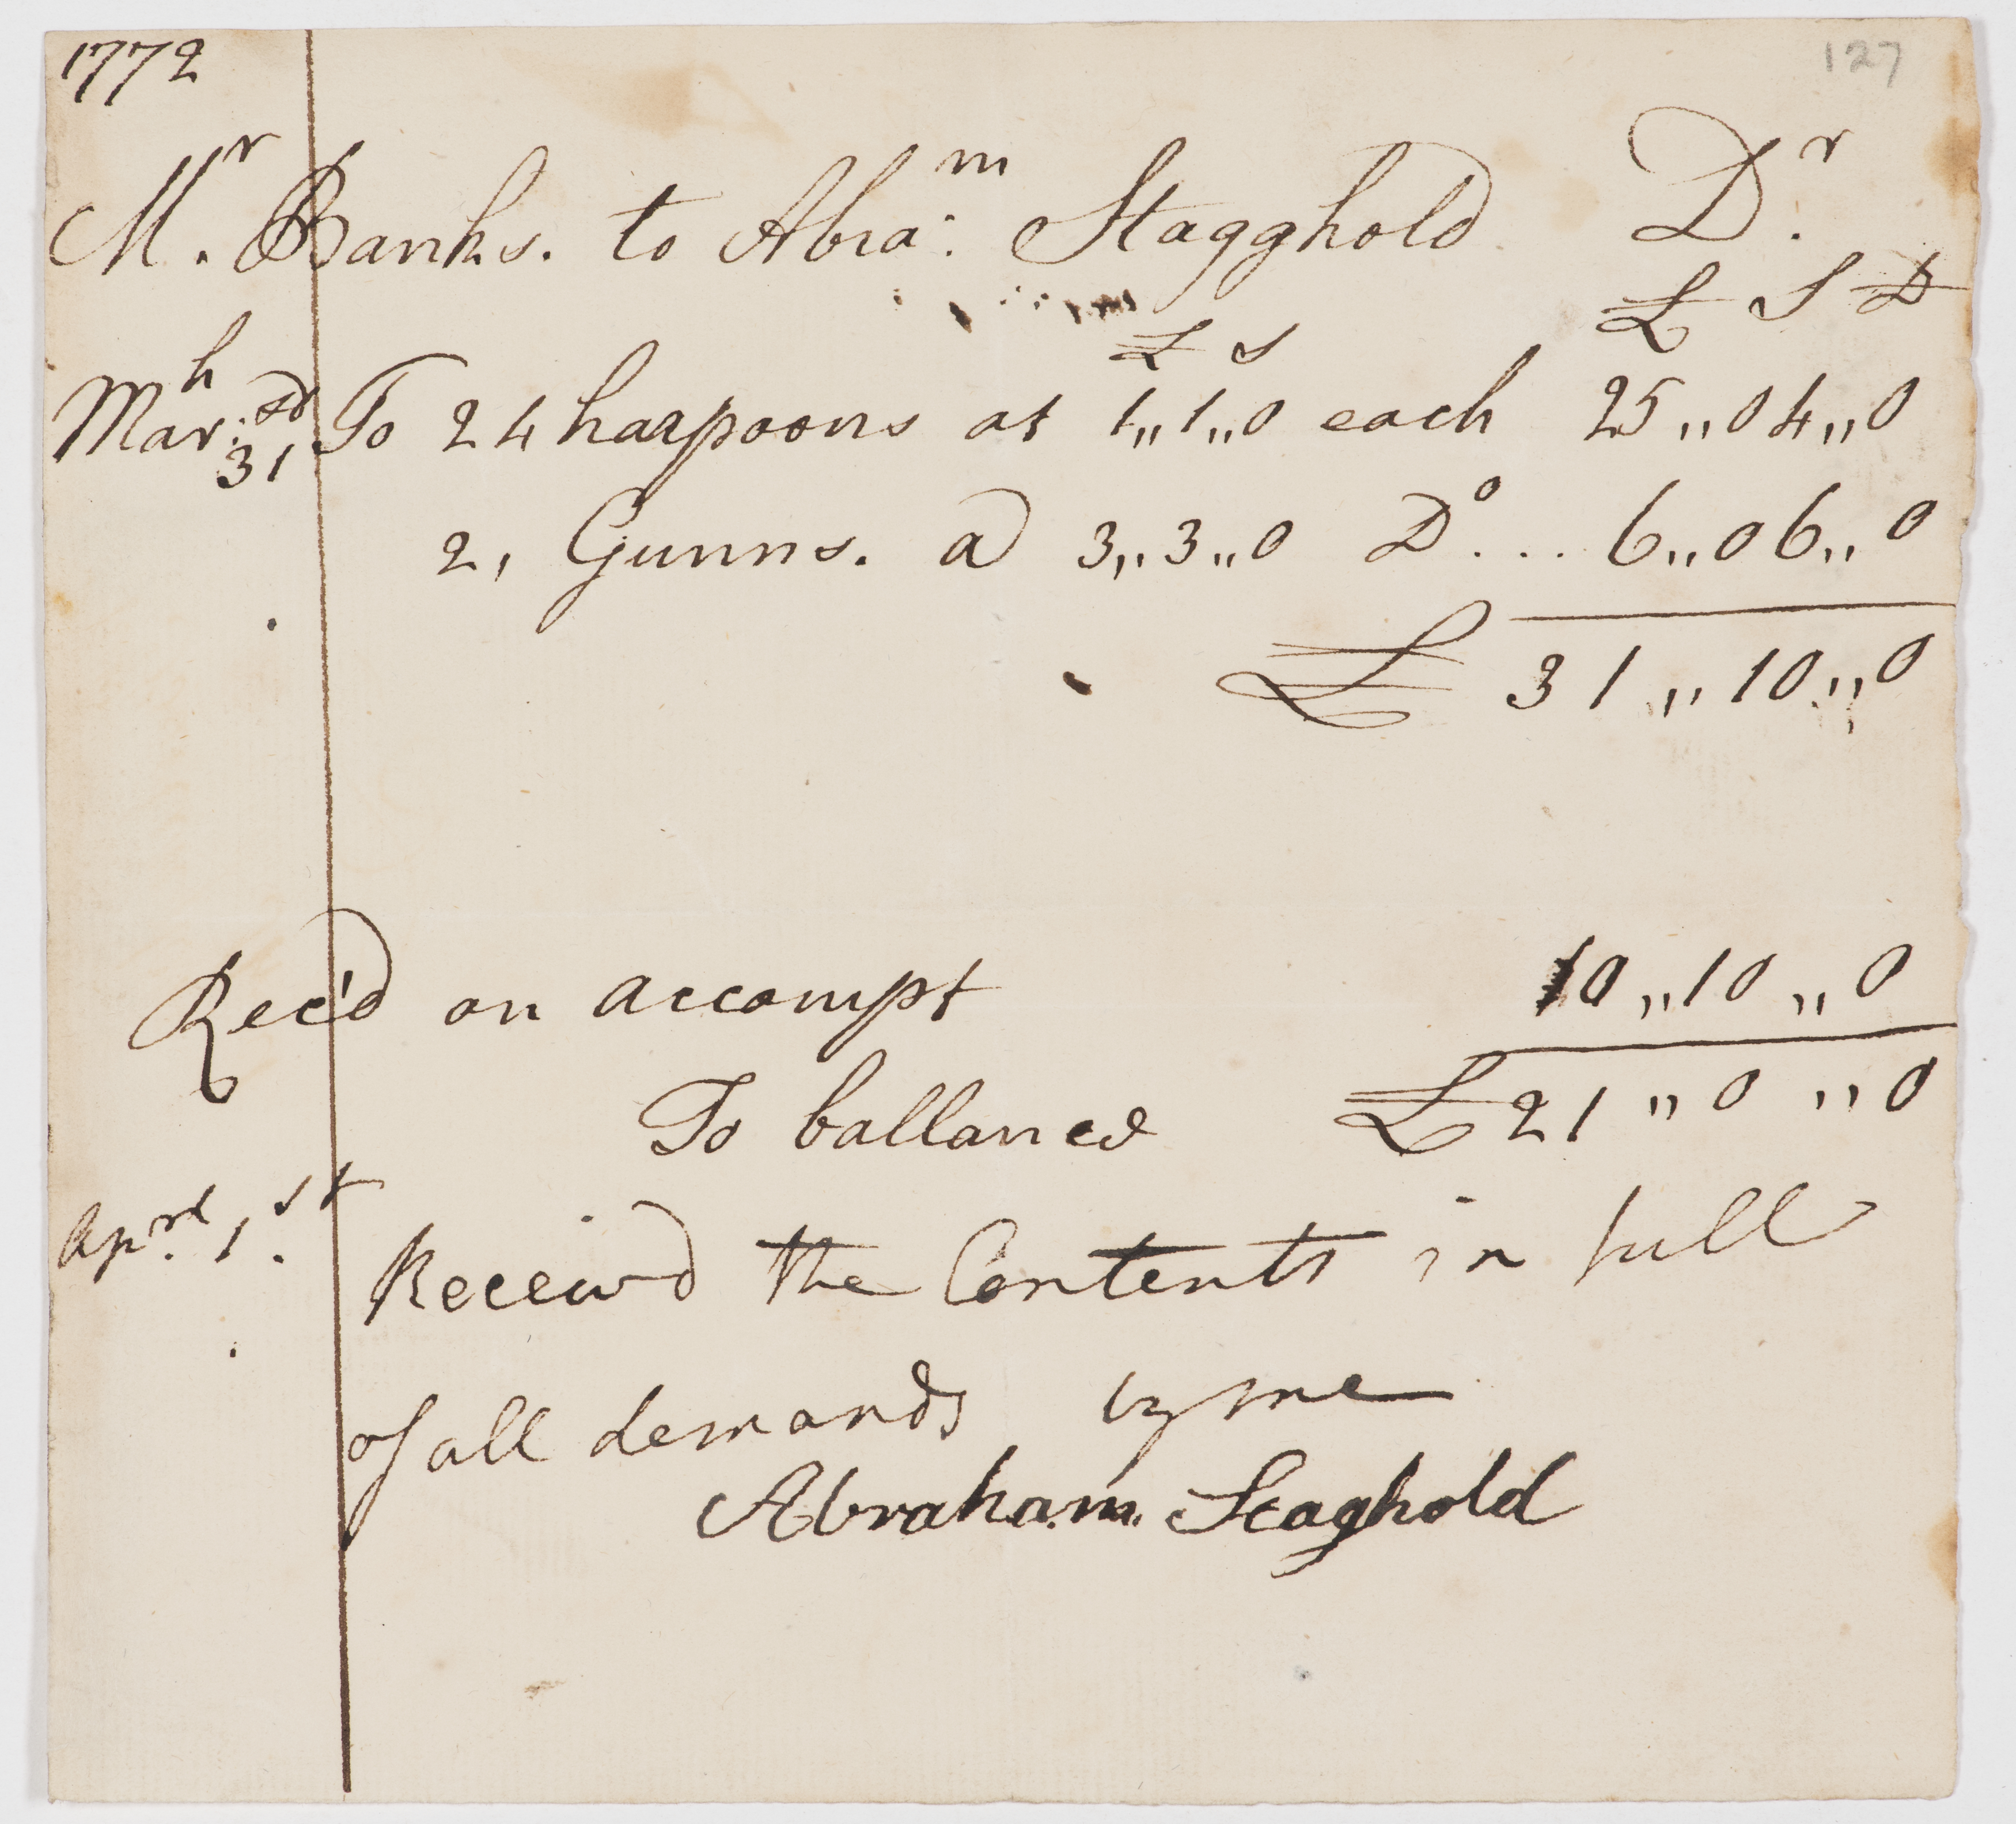 1772
127
Mr. Banks. to Abram: Stagghold Dr.
£ S D
£ s
Marh: 31sd, To 24 harpoons at 1,,1,,0 each 25,,04,,0
2, Gunns. a 3,,3,,0 Do... 6,,06,,0
£ 31,,10,,0
Rec'd on accompt 10,,10,,0
To ballance £21,,0,,0
Aprel. 1st. Receivd the Contents in full
of all demands by me
Abraham. Staghold